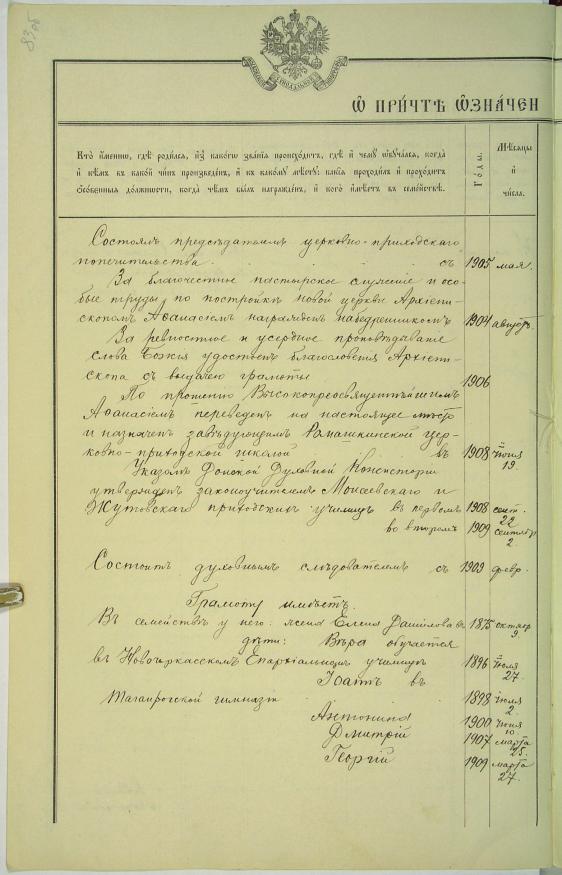 83 об
Ѡ ПРИ́ЧТѢ Ѡ҆ЗНА́ЧЕН
Кто̀ и҆́менно, гдѣ̀ роди́лсѧ, и҆з̾ како́гѡ зва́нїѧ происхо́дитъ, гдѣ̀ и҆ чемꙋ̀ ѡ҆бꙋча́лсѧ, когда̀
и҆ кѣ́мъ въ како́й чи́нъ произведе́нъ, и҆ къ како́мꙋ мѣ́стꙋ; какі̑ѧ проходи́лъ и҆ прохо́дитъ
ѻ҆со́бенныѧ до́лжности, когда̀ чѣ́мъ бы́лъ награжде́нъ, и҆ кого̀ и҆мѣ́етъ въ семе́йствѣ.
Го́ды.
Мѣ́сѧцы
и҆
чи́сла.
Состоялъ предсѣдателемъ церковно-приходскаго
попечительства съ 1905 мая.
За благочестное пастырское служеніе и осо-
бые труды по постройкѣ новой церкви Архіепи-
скопомъ Аѳанасіемъ награжденъ набедренникомъ 1904 август.
За ревностное и усердное проповѣдываніе
слова Божія удостоенъ благословенія Архіепи-
скопа съ выдачею грамоты 1906
По прошенію Высокопреосвященнѣйшимъ
Аѳанасіемъ переведенъ на настоящее мѣсто
и назначенъ завѣдующимъ Ромашкинской цер-
ковно-приходской школой въ 1908 іюня
19.
Указомъ Донской Духовной Консисторіи
утвержденъ законоучителемъ Моисеевскаго и
Жутовскаго приходскихъ училищъ въ первомъ 1908 сент.
22
во второмъ 1909 сентябр
2.
Состоитъ духовнымъ слѣдователемъ съ 1909 февр.
Грамоту имѣетъ.
Въ семействѣ у него: жена Елена Даніилова въ 1875 октябр
9.
дѣти: Вѣра обучается
въ Новочеркасскомъ Епархіальномъ училищѣ 1896 іюля
27.
Іоаннъ въ
Таганрогской гимназіи 1898 іюля
2
Антонина 1900 іюня
10
Дмитрій 1907 марта
25.
Георгій 1909 марта
27.